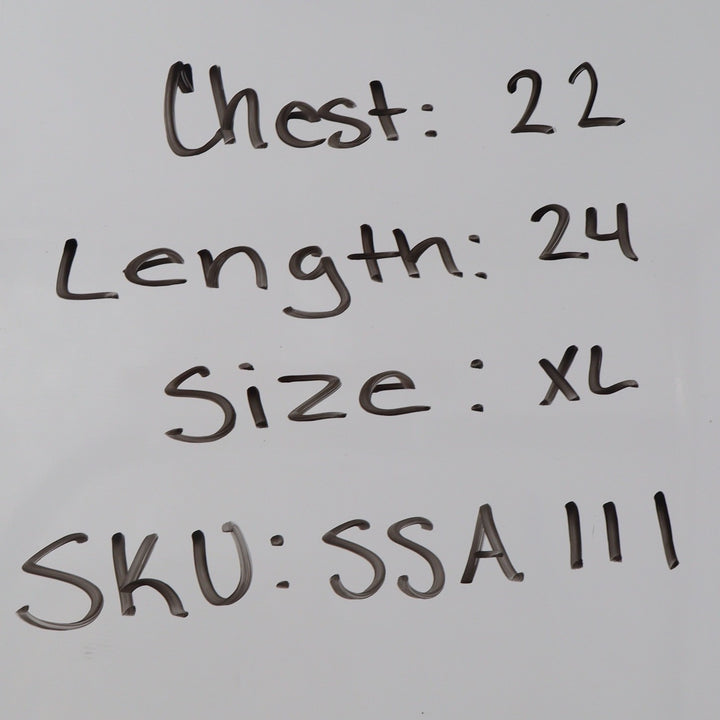 Chest: 22
Length: 24
Size: XL
SKU: SSA 111